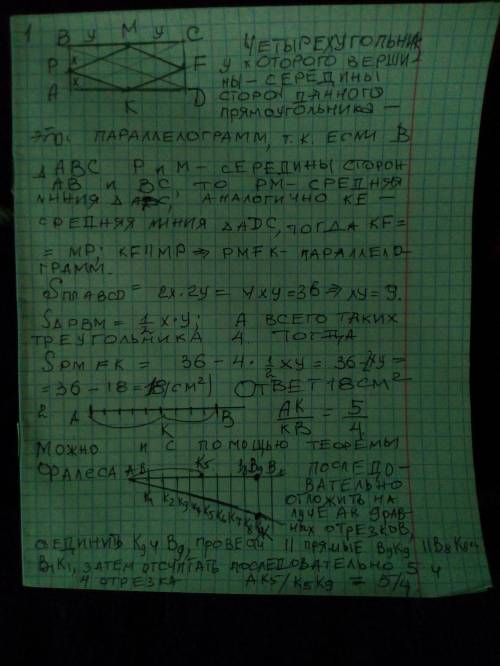 1
B y M y C
ЧЕТЫРЕХУГОЛЬНИК
P x F У КОТОРОГО ВЕРШИ-
x НЫ – СЕРЕДИНЫ
A K D СТОРОН ДАННОГО
ПРЯМОУГОЛЬНИКА –
ЭТО ПАРАЛЛЕЛОГРАММ, Т.К. ЕСЛИ В
△ABC P И M – СЕРЕДИНЫ СТОРОН
AB И BC, ТО PM – СРЕДНЯЯ
ЛИНИЯ △ABC, АНАЛОГИЧНО KF –
СРЕДНЯЯ ЛИНИЯ △ADC, ТОГДА KF =
= MP; KF || MP ⇒ PMFK – ПАРАЛЛЕЛО-
ГРАММ.
SПЛ ABCD = 2x·2y = 4xy = 36 ⇒ xy = 9.
S△PBM = 1/2 x·y; А ВСЕГО ТАКИХ
ТРЕУГОЛЬНИКА 4. ТОГДА
SPMFK = 36 – 4·1/2 xy = 36 – 2xy =
= 36 – 18 = 18 (см²) ОТВЕТ 18 СМ²
2. A K B AK/KB = 5/4
МОЖНО И С ПОМОЩЬЮ ТЕОРЕМЫ
ФАЛЕСА A B1 K5 B8 B9 B ПОСЛЕДО-
ВАТЕЛЬНО
K1 K2 K3 K4 K5 K6 K7 K8 K9 ОТЛОЖИТЬ НА
ЛУЧЕ AK 9 РАВ-
НЫХ ОТРЕЗКОВ,
СОЕДИНИТЬ K9 И B9, ПРОВЕСТИ || ПРЯМЫЕ B9K9 || B8K8 И
B1K1, ЗАТЕМ ОТСЧИТАТЬ ПОСЛЕДОВАТЕЛЬНО 5 И
4 ОТРЕЗКА AK5/K5K9 = 5/4